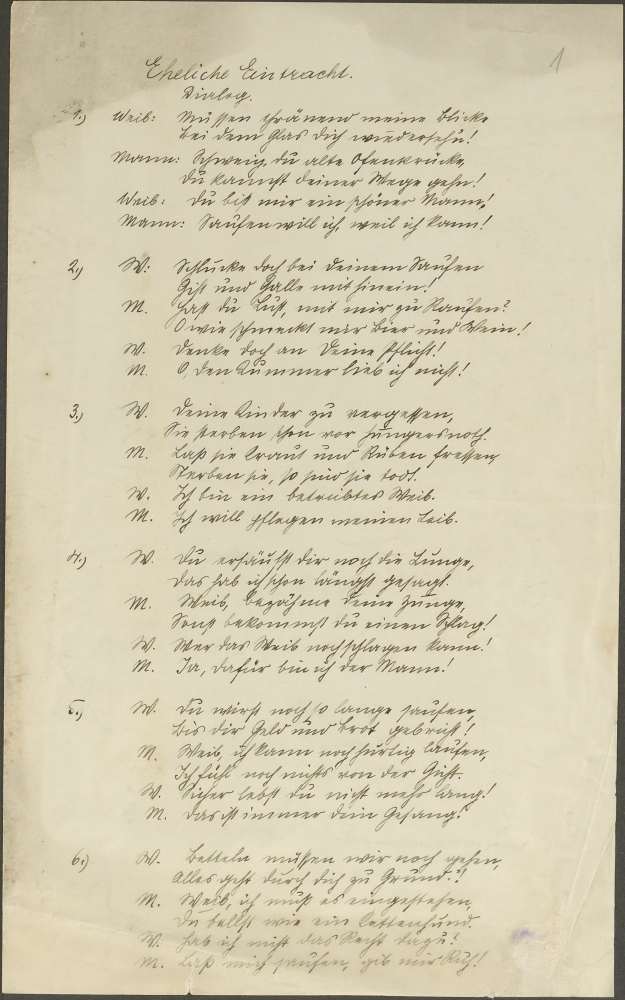 1
Eheliche Eintracht.
Dialog.
1.) Weib: Müssen thränend meine Blicke
bei dem Glas dich wiedersehn!
Mann: Schweig, du alte Ofenkrücke,
Du kannst deiner Wege gehn!
Weib: Du bist mir ein schöner Mann!
Mann: Saufen will ich, weil ich kann!
2.) W: Schlucke doch bei deinem Saufen
Gift und Galle mit hinein!
M. Hast du Lust, mit mir zu Raufen?
O wie schmeckt mir Bier und Wein!
W. Denke doch an Deine Pflicht!
M. O, den Kummer lieb ich nicht!
3.) W. Deine Kinder zu vergessen,
Sie sterben schon vor Hungersnoth.
M. Laß sie Kraut und Rüben fressen,
Sterben sie, so sind sie todt.
W. Ich bin ein betrübtes Weib.
M. Ich will pflegen meinen Leib.
4.) W. Du ersäufst dir noch die Lunge,
Das hab ich schon längst gesagt.
M. Weib, bezähme deine Zunge,
Sonst bekommst du einen Schlag!
W. Wer das Weib noch schlagen kann!
M. Ja, dafür bin ich der Mann!
5.) W. Du wirst noch so lange saufen,
bis dir Geld und Brot gebricht!
M. Weib, ich kann noch hurtig laufen,
Ich fühl noch nichts von der Gicht.
W. Sicher lebst du nicht mehr lang!
M. Das ist immer dein Gesang!
6.) W. Betteln müssen wir noch gehen,
Alles geht durch dich zu Grund.!
M. Weib, ich muß es eingestehen,
Du bellst wie ein Kettenhund.
W. Hab ich nicht das Recht dazu?
M. Laß mich saufen, gib mir Ruh!